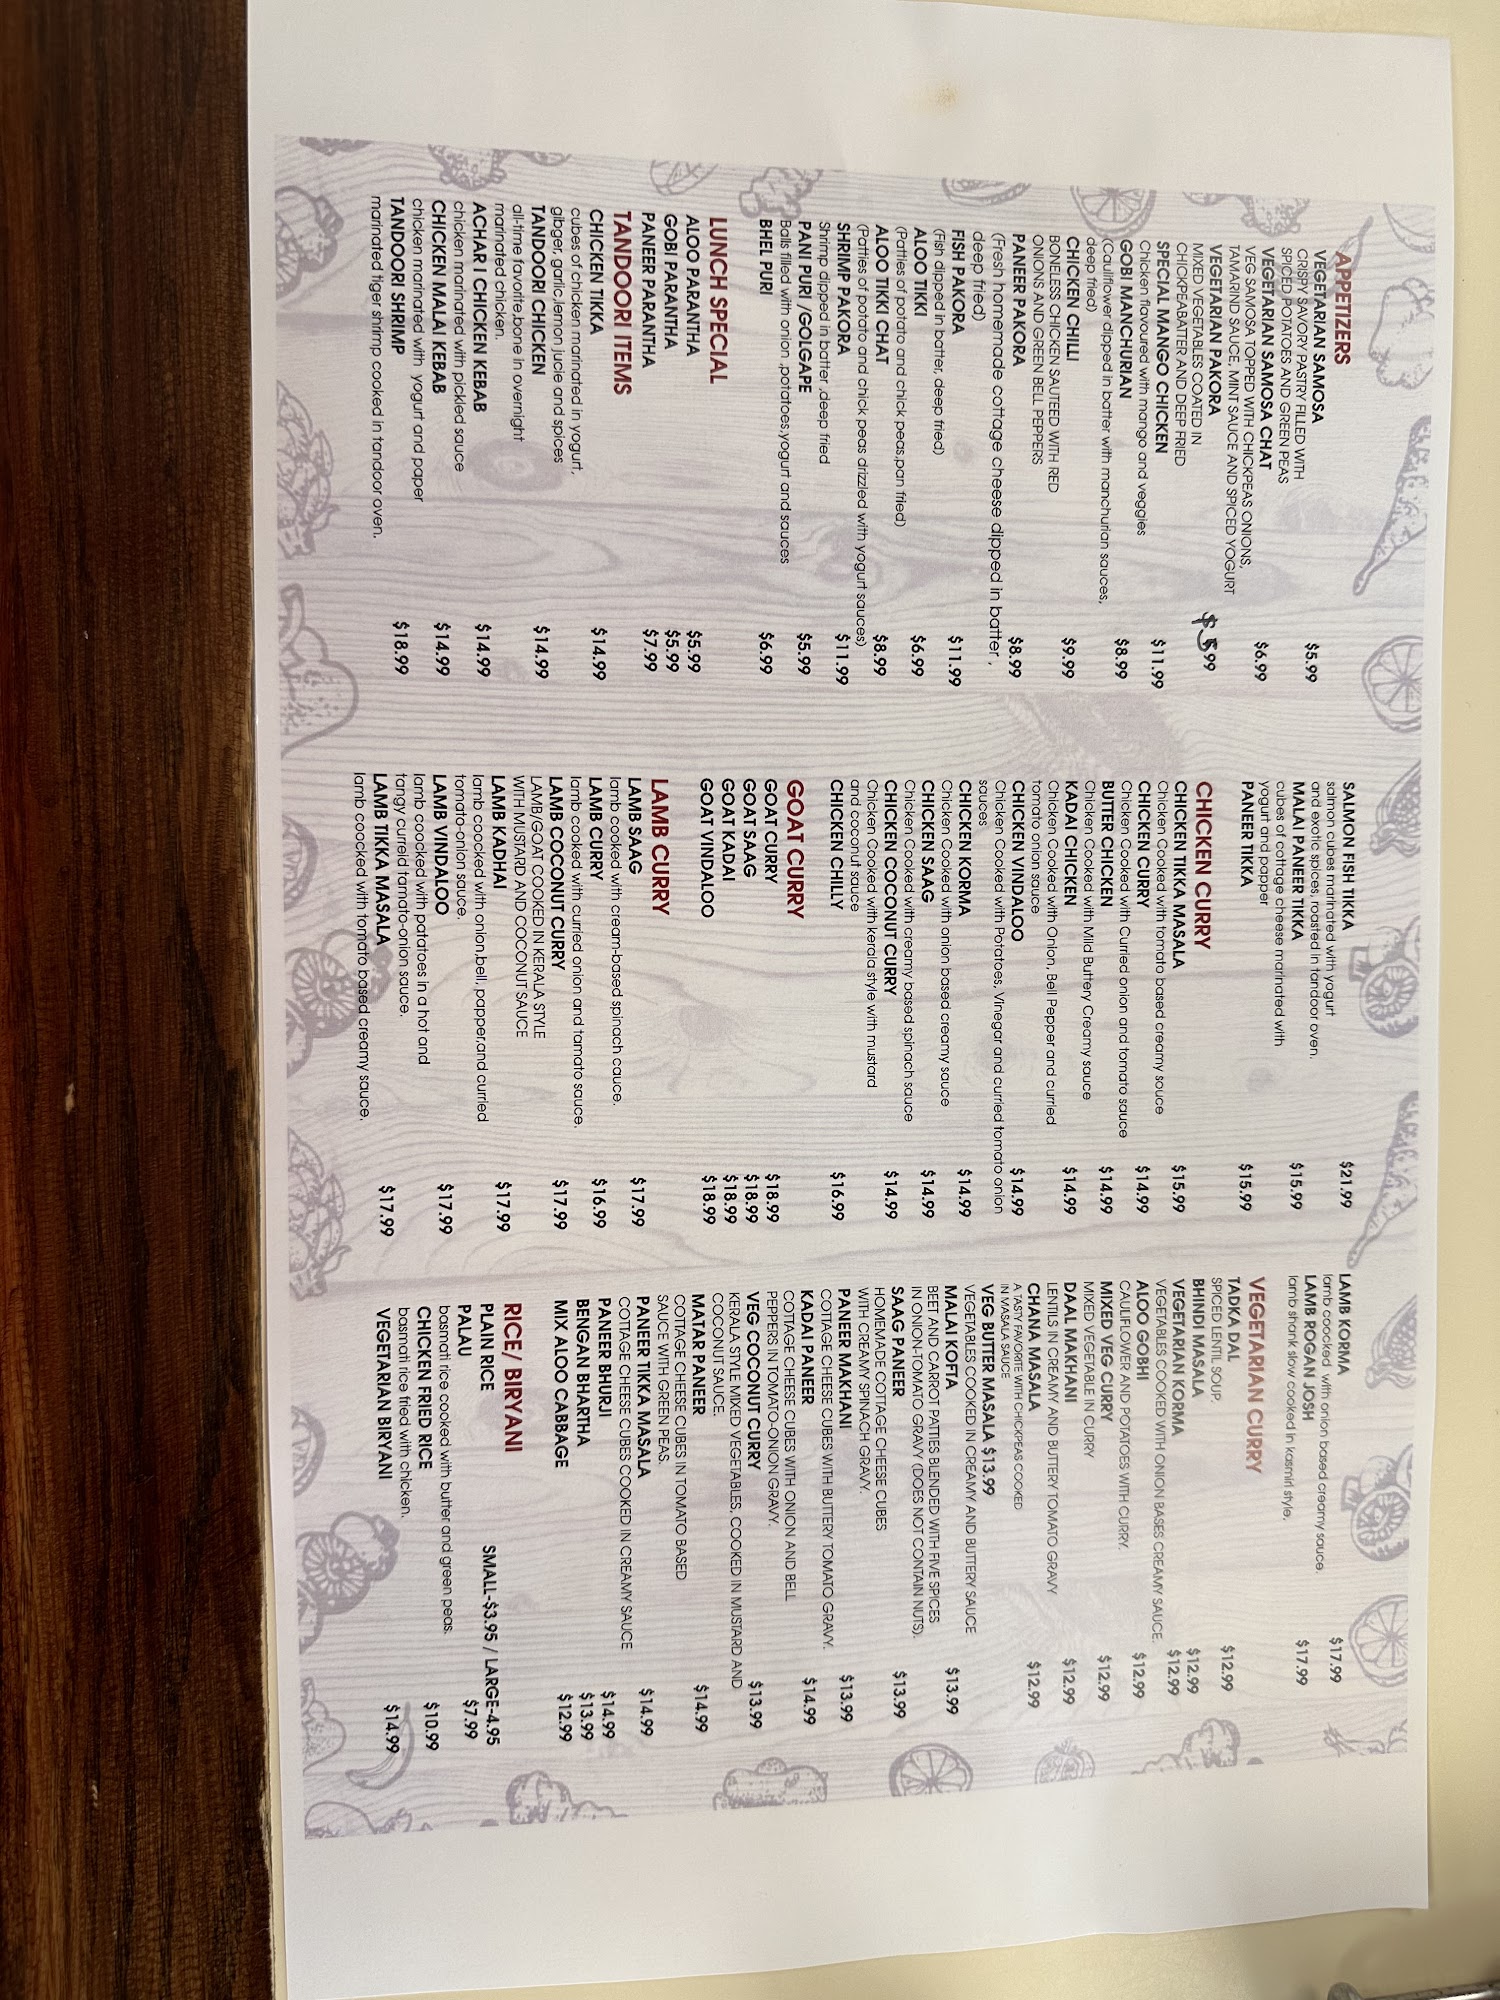 APPETIZERS
VEGETARIAN SAMOSA $5.99
CRISPY SAVORY PASTRY FILLED WITH
SPICED POTATOES AND GREEN PEAS
VEGETARIAN SAMOSA CHAT $6.99
VEG SAMOSA TOPPED WITH CHICKPEAS ONIONS,
TAMARIND SAUCE, MINT SAUCE AND SPICED YOGURT
VEGETARIAN PAKORA $5.99
MIXED VEGETABLES COATED IN
CHICKPEABATTER AND DEEP FRIED
SPECIAL MANGO CHICKEN $11.99
Chicken flavoured with mango and veggies
GOBI MANCHURIAN $8.99
(Cauliflower dipped in batter with manchurian sauces,
deep fried)
CHICKEN CHILLI $9.99
BONELESS CHICKEN SAUTEED WITH RED
ONIONS AND GREEN BELL PEPPERS
PANEER PAKORA $8.99
(Fresh homemade cottage cheese dipped in batter ,
deep fried)
FISH PAKORA $11.99
(Fish dipped in batter, deep fried)
ALOO TIKKI $6.99
(Patties of potato and chick peas,pan fried)
ALOO TIKKI CHAT $8.99
(Patties of potato and chick peas drizzled with yogurt sauces)
SHRIMP PAKORA $11.99
Shrimp dipped in batter ,deep fried
PANI PURI /GOLGAPE $5.99
Balls filled with onion ,potatoes,yogurt and sauces
BHEL PURI $6.99
LUNCH SPECIAL
ALOO PARANTHA $5.99
GOBI PARANTHA $5.99
PANEER PARANTHA $7.99
TANDOORI ITEMS
CHICKEN TIKKA $14.99
cubes of chicken marinated in yogurt,
gibger, garlic,lemon jucie and spices
TANDOORI CHICKEN $14.99
all-time favorite,bone in overnight
marinated chicken.
ACHAR I CHICKEN KEBAB $14.99
chicken marinated with pickled sauce
CHICKEN MALAI KEBAB $14.99
chicken marinated with yogurt and paper
TANDOORI SHRIMP $18.99
marinated tiger shrimp cooked in tandoor oven.
SALMON FISH TIKKA $21.99
salmon cubes marinated with yogurt
and exotic spices, roasted in tandoor oven.
MALAI PANEER TIKKA $15.99
cubes of cottage cheese marinated with
yogurt and papper
PANEER TIKKA $15.99
CHICKEN CURRY
CHICKEN TIKKA MASALA $15.99
Chicken Cooked with tomato based creamy souce
CHICKEN CURRY $14.99
Chicken Cooked with Curried onion and tomato sauce
BUTTER CHICKEN $14.99
Chicken Cooked with Mild Buttery Creamy sauce
KADAI CHICKEN $14.99
Chicken Cooked with Onion, Bell Pepper and curried
tomato onion sauce
CHICKEN VINDALOO $14.99
Chicken Cooked with Potatoes, Vinegar and curried tomato onion
sauces
CHICKEN KORMA $14.99
Chicken Cooked with onion based creamy sauce
CHICKEN SAAG $14.99
Chicken Cooked with creamy based spinach sauce
CHICKEN COCONUT CURRY $14.99
Chicken Cooked with kerala style with mustard
and coconut sauce
CHICKEN CHILLY $16.99
GOAT CURRY
GOAT CURRY $18.99
GOAT SAAG $18.99
GOAT KADAI $18.99
GOAT VINDALOO $18.99
LAMB CURRY
LAMB SAAG $17.99
lamb cooked with cream-based spinach cauce.
LAMB CURRY $16.99
lamb cooked with curried onion and tamato sauce.
LAMB COCONUT CURRY $17.99
LAMB/GOAT COOKED IN KERALA STYLE
WITH MUSTARD AND COCONUT SAUCE
LAMB KADHAI $17.99
lamb coocked with onion,bell, papper,and curried
tomato-onion sauce.
LAMB VINDALOO $17.99
lamb cooked with patatoes in a hot and
tangy curreid tamato-onion sauce.
LAMB TIKKA MASALA $17.99
lamb coocked with tomato based creamy sauce.
LAMB KORMA $17.99
lamb coocked with onion based creamy sauce.
LAMB ROGAN JOSH $17.99
lamb shank slow cooked in kasmiri style.
VEGETARIAN CURRY
TADKA DAL $12.99
SPICED LENTIL SOUP.
BHINDI MASALA $12.99
VEGETARIAN KORMA $12.99
VEGETABLES COOKED WITH ONION BASES CREAMY SAUCE.
ALOO GOBHI $12.99
CAULIFLOWER AND POTATOES WITH CURRY.
MIXED VEG CURRY $12.99
MIXED VEGETABLE IN CURRY
DAAL MAKHANI $12.99
LENTILS IN CREAMY AND BUTTERY TOMATO GRAVY
CHANA MASALA $12.99
A TASTY FAVORITE WITH CHICKPEAS COOKED
IN MASALA SAUCE
VEG BUTTER MASALA $13.99
VEGETABLES COOKED IN CREAMY AND BUTTERY SAUCE
MALAI KOFTA $13.99
BEET AND CARROT PATTIES BLENDED WITH FIVE SPICES
IN ONION-TOMATO GRAVY (DOES NOT CONTAIN NUTS).
SAAG PANEER $13.99
HOMEMADE COTTAGE CHEESE CUBES
WITH CREAMY SPINACH GRAVY.
PANEER MAKHANI $13.99
COTTAGE CHEESE CUBES WITH BUTTERY TOMATO GRAVY.
KADAI PANEER $14.99
COTTAGE CHEESE CUBES WITH ONION AND BELL
PEPPERS IN TOMATO-ONION GRAVY.
VEG COCONUT CURRY $13.99
KERALA STYLE MIXED VEGETABLES, COOKED IN MUSTARD AND
COCONUT SAUCE.
MATAR PANEER $14.99
COTTAGE CHEESE CUBES IN TOMATO BASED
SAUCE WITH GREEN PEAS.
PANEER TIKKA MASALA $14.99
COTTAGE CHEESE CUBES COOKED IN CREAMY SAUCE
PANEER BHURJI $14.99
BENGAN BHARTHA $13.99
MIX ALOO CABBAGE $12.99
RICE/ BIRYANI
PLAIN RICE SMALL-$3.95 / LARGE-4.95
PALAU $7.99
basmati rice cooked with butter and green peas.
CHICKEN FRIED RICE $10.99
basmati rice fried with chicken.
VEGETARIAN BIRYANI $14.99